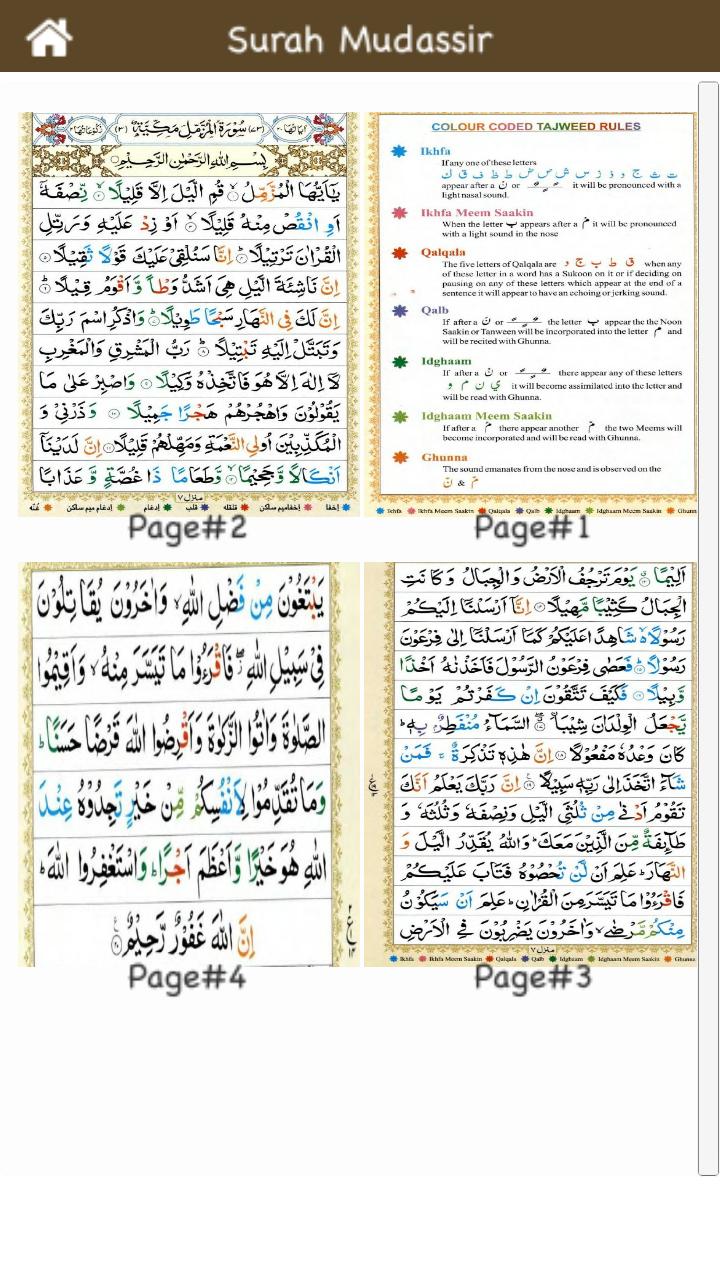 Surah Mudassir
COLOUR CODED TAJWEED RULES
Ikhfa
If any one of these letters
ت ث ج د ذ ز س ش ص ض ط ظ ف ق ك
appear after a نْ or it will be pronounced with a
light nasal sound.
Ikhfa Meem Saakin
When the letter ب appears after مْ it will be pronounced
with a light sound in the nose
Qalqala
The five letters of Qalqala are ق ط ب ج د when any
of these letter in a word has a Sukoon on it or if deciding on
pausing on any of these letters which appear at the end of a
sentence it will appear to have an echoing or jerking sound.
Qalb
If after a نْ or the letter ب appear the the Noon
Saakin or Tanween will be incorporated into the letter م and
will be recited with Ghunna.
Idghaam
If after a نْ or there appear any of these letters
ي ن م و it will become assimilated into the letter and
will be read with Ghunna.
Idghaam Meem Saakin
If after a مْ there appear another م the two Meems will
become incorporated and will be read with Ghunna.
Ghunna
The sound emanates from the nose and is observed on the
نّ & مّ
Ikhfa Ikhfa Meem Saakin Qalqala Qalb Idghaam Idghaam Meem Saakin Ghunn
Page#1
سُوْرَةُ الْمُزَّمِّلِ مَكِّيَّةٌ
بِسْمِ اللهِ الرَّحْمٰنِ الرَّحِيْمِ
يٰٓاَيُّهَا الْمُزَّمِّلُ ۙ۱ قُمِ الَّيْلَ اِلَّا قَلِيْلًا ۙ۲ نِّصْفَهٗٓ
اَوِ انْقُصْ مِنْهُ قَلِيْلًا ۙ۳ اَوْ زِدْ عَلَيْهِ وَرَتِّلِ
الْقُرْاٰنَ تَرْتِيْلًا ؕ۴ اِنَّا سَنُلْقِيْ عَلَيْكَ قَوْلًا ثَقِيْلًا ۵
اِنَّ نَاشِئَةَ الَّيْلِ هِيَ اَشَدُّ وَطْاً وَّاَقْوَمُ قِيْلًا ؕ۶
اِنَّ لَكَ فِي النَّهَارِ سَبْحًا طَوِيْلًا ؕ۷ وَاذْكُرِ اسْمَ رَبِّكَ
وَتَبَتَّلْ اِلَيْهِ تَبْتِيْلًا ؕ۸ رَبُّ الْمَشْرِقِ وَالْمَغْرِبِ
لَآ اِلٰهَ اِلَّا هُوَ فَاتَّخِذْهُ وَكِيْلًا ۹ وَاصْبِرْ عَلٰى مَا
يَقُوْلُوْنَ وَاهْجُرْهُمْ هَجْرًا جَمِيْلًا ۱۰ وَذَرْنِيْ وَ
الْمُكَذِّبِيْنَ اُولِي النَّعْمَةِ وَمَهِّلْهُمْ قَلِيْلًا ۱۱ اِنَّ لَدَيْنَآ
اَنْكَالًا وَّجَحِيْمًا ۙ۱۲ وَّطَعَامًا ذَا غُصَّةٍ وَّعَذَابًا
منزل ۷
إخفا إخفاميم ساكن قلقله قلب إدغام إدغام ميم ساكن غنّه
Page#2
اَلِيْمًا ۱۳ يَوْمَ تَرْجُفُ الْاَرْضُ وَالْجِبَالُ وَكَانَتِ
الْجِبَالُ كَثِيْبًا مَّهِيْلًا ۱۴ اِنَّآ اَرْسَلْنَآ اِلَيْكُمْ
رَسُوْلًا ۙ شَاهِدًا عَلَيْكُمْ كَمَآ اَرْسَلْنَآ اِلٰى فِرْعَوْنَ
رَسُوْلًا ؕ۱۵ فَعَصٰى فِرْعَوْنُ الرَّسُوْلَ فَاَخَذْنٰهُ اَخْذًا
وَّبِيْلًا ۱۶ فَكَيْفَ تَتَّقُوْنَ اِنْ كَفَرْتُمْ يَوْمًا
يَّجْعَلُ الْوِلْدَانَ شِيْبَا ۱۷ السَّمَآءُ مُنْفَطِرٌۢ بِهٖ ؕ
كَانَ وَعْدُهٗ مَفْعُوْلًا ۱۸ اِنَّ هٰذِهٖ تَذْكِرَةٌ ۚ فَمَنْ
شَآءَ اتَّخَذَ اِلٰى رَبِّهٖ سَبِيْلًا ۱۹ اِنَّ رَبَّكَ يَعْلَمُ اَنَّكَ
تَقُوْمُ اَدْنٰى مِنْ ثُلُثَيِ الَّيْلِ وَنِصْفَهٗ وَثُلُثَهٗ وَ
طَآئِفَةٌ مِّنَ الَّذِيْنَ مَعَكَ ؕ وَاللهُ يُقَدِّرُ الَّيْلَ وَ
النَّهَارَ ؕ عَلِمَ اَنْ لَّنْ تُحْصُوْهُ فَتَابَ عَلَيْكُمْ
فَاقْرَءُوْا مَا تَيَسَّرَ مِنَ الْقُرْاٰنِ ؕ عَلِمَ اَنْ سَيَكُوْنُ
مِنْكُمْ مَّرْضٰى ۙ وَاٰخَرُوْنَ يَضْرِبُوْنَ فِي الْاَرْضِ
منزل ۷
Ikhfa Ikhfa Meem Saakin Qalqala Qalb Idghaam Idghaam Meem Saakin Ghunna
Page#3
يَبْتَغُوْنَ مِنْ فَضْلِ اللهِ ۙ وَاٰخَرُوْنَ يُقَاتِلُوْنَ
فِيْ سَبِيْلِ اللهِ ۖ فَاقْرَءُوْا مَا تَيَسَّرَ مِنْهُ ۙ وَاَقِيْمُوا
الصَّلٰوةَ وَاٰتُوا الزَّكٰوةَ وَاَقْرِضُوا اللهَ قَرْضًا حَسَنًا ؕ
وَمَا تُقَدِّمُوْا لِاَنْفُسِكُمْ مِّنْ خَيْرٍ تَجِدُوْهُ عِنْدَ
اللهِ هُوَ خَيْرًا وَّاَعْظَمَ اَجْرًا ؕ وَاسْتَغْفِرُوا اللهَ ؕ
اِنَّ اللهَ غَفُوْرٌ رَّحِيْمٌ ۲۰
Page#4